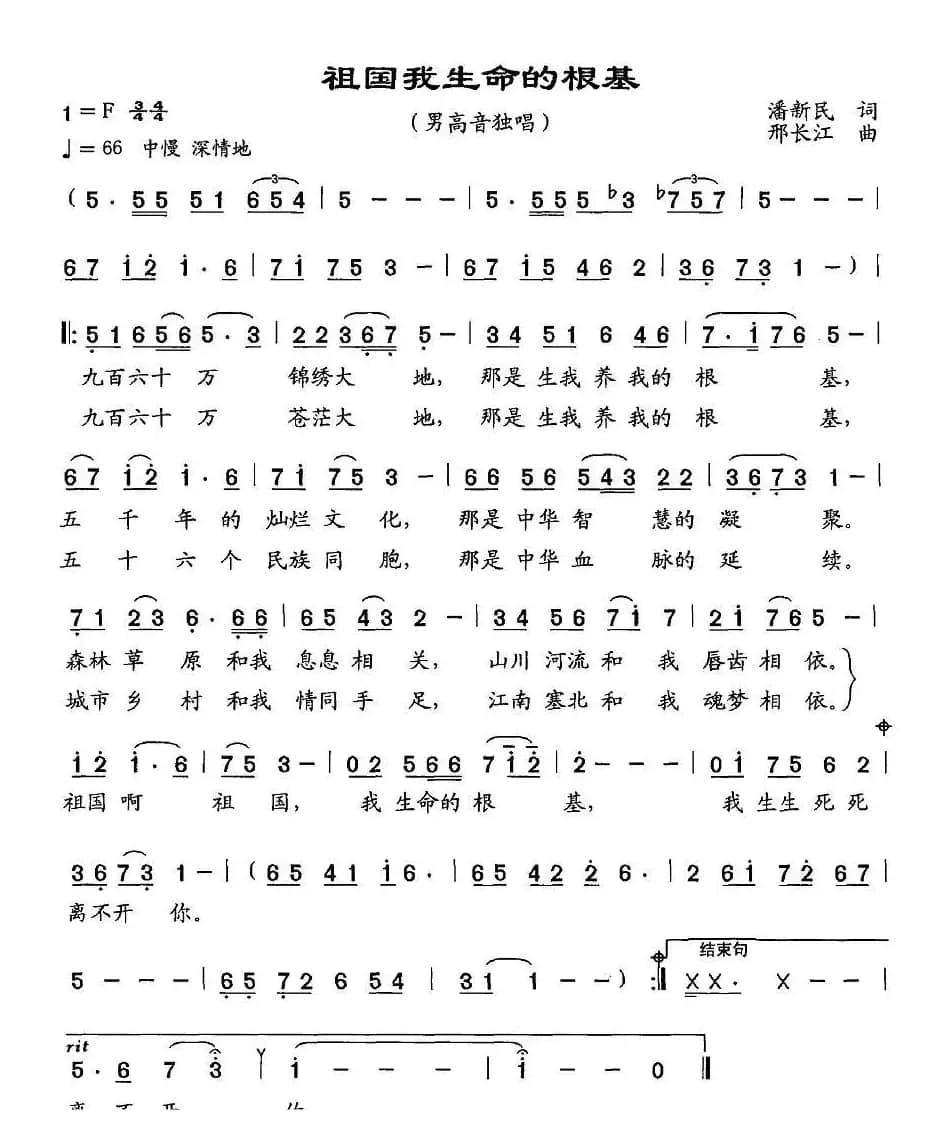 祖国我生命的根基
1=F 3/4 4/4
(男高音独唱)
潘新民 词
邢长江 曲
♩=66 中慢 深情地
(5. 55 51 654 | 5 - - - | 5. 555 b3 b757 | 5 - - |
67 12 1. 6 | 71 75 3 - | 67 15 46 2 | 36 73 1 - ) |
‖: 51656 5. 3 | 22367 5 - | 34 51 6 46 | 7. 176 5 - |
九百六十 万 锦绣大 地, 那是 生我 养 我的 根 基,
九百六十 万 苍茫大 地, 那是 生我 养 我的 根 基,
67 12 1. 6 | 71 75 3 - | 66 56 543 22 | 3673 1 - |
五 千 年 的 灿烂 文 化, 那是 中华 智 慧的 凝 聚。
五 十 六 个 民族 同 胞, 那是 中华 血 脉的 延 续。
71 23 6. 66 | 65 43 2 - | 34 56 71 7 | 21 765 - |
森林 草 原 和我 息息 相 关, 山川 河流 和 我 唇齿 相 依。
城市 乡 村 和我 情同 手 足, 江南 塞北 和 我 魂梦 相 依。
12 1. 6 | 75 3 - | 02 566 712 | 2 - - - | 01 75 6 2 |
祖国 啊 祖 国, 我 生命的 根 基, 我 生生 死死
3673 1 - | (65 41 16. | 65 42 2 6. | 2 61 72 67 |
离不开 你。
结束句
5 - - - | 65 72 6 54 | 31 1 - - ) :‖ XX. X - - |
rit
5. 6 7 3 1 - - - | 1 - - 0 ‖